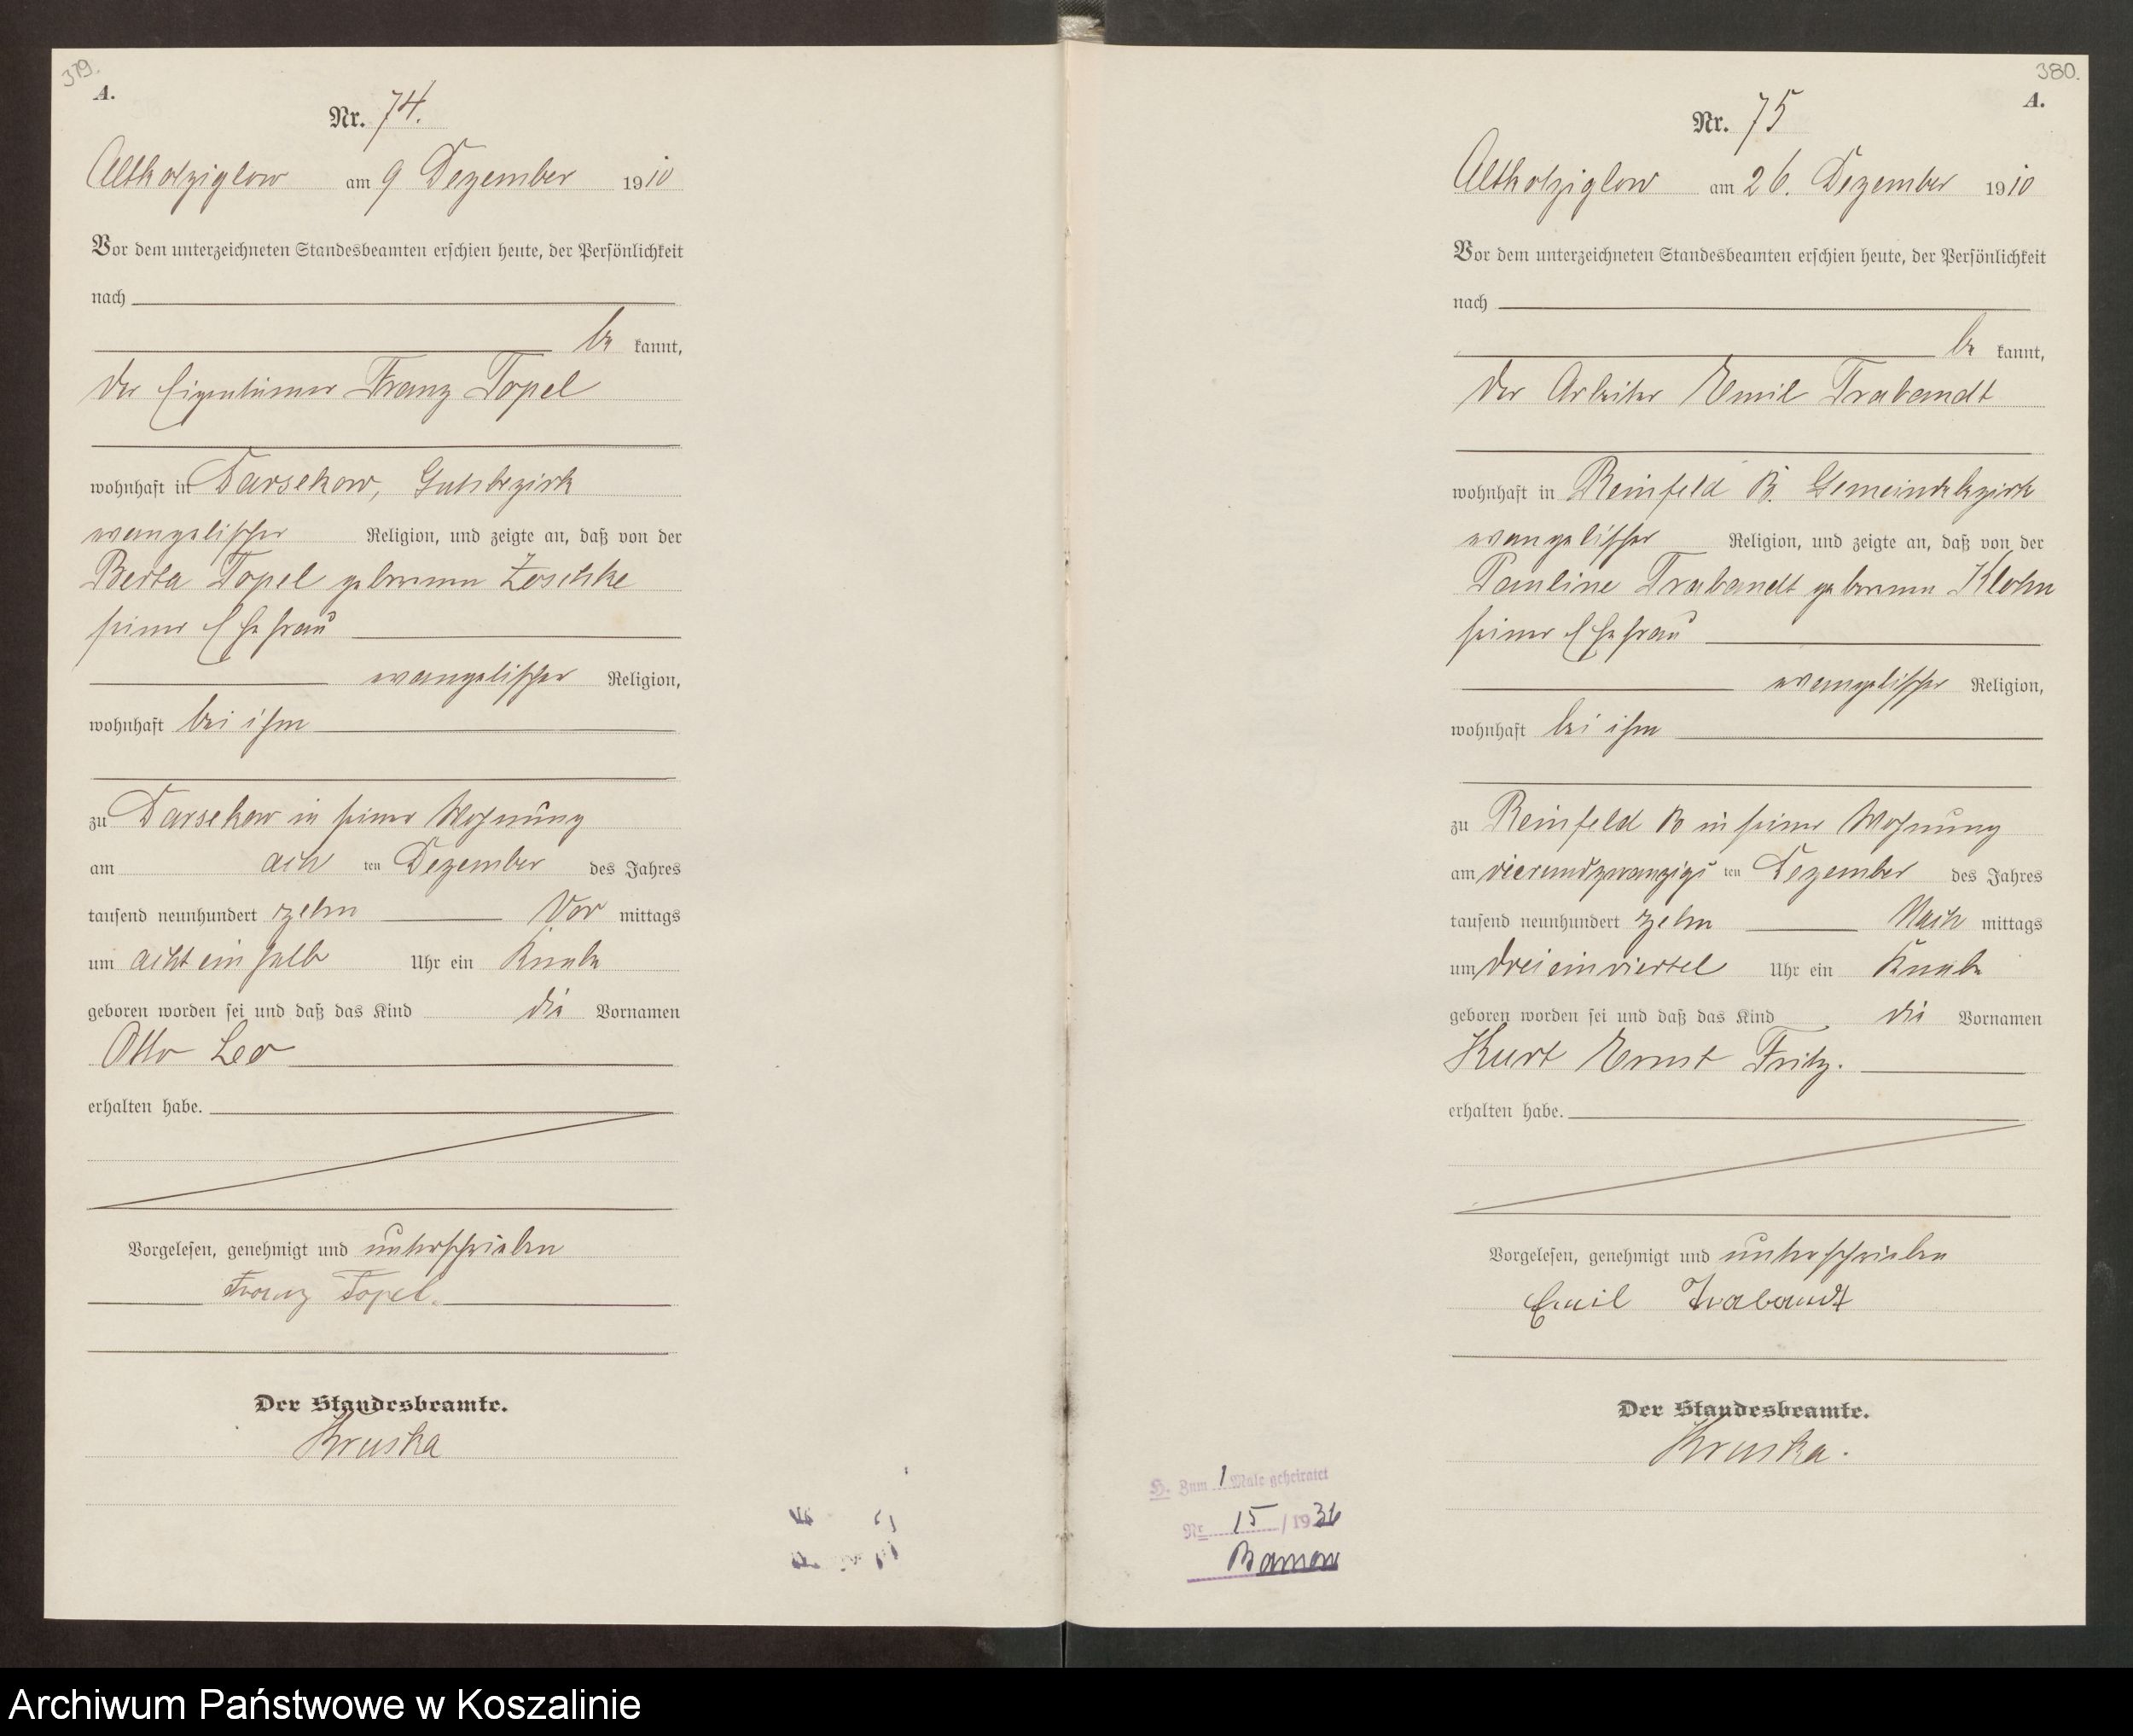 379.
A.
Nr. 74.
Altkolziglow am 9 Dezember 1910
Vor dem unterzeichneten Standesbeamten erschien heute, der Persönlichkeit
nach
be kannt,
der Eigentümer Franz Topel
wohnhaft in Darsekow, Gutsbezirk
evangelischer Religion, und zeigte an, daß von der
Berta Topel geborenen Zoschke
seiner Ehefrau
evangelischer Religion,
wohnhaft bei ihm
zu Darsekow in seiner Wohnung
am ach ten Dezember des Jahres
tausend neunhundert zehn Vor mittags
um acht ein halb Uhr ein Knabe
geboren worden sei und daß das Kind die Vornamen
Otto Leo
erhalten habe.
Vorgelesen, genehmigt und unterschrieben
Franz Topel.
Der Standesbeamte.
Kruska
380.
A.
Nr. 75
Altkolziglow am 26. Dezember 1910
Vor dem unterzeichneten Standesbeamten erschien heute, der Persönlichkeit
nach
be kannt,
der Arbeiter Emil Trabandt
wohnhaft in Reinfeld B. Gemeindebezirk
evangelischer Religion, und zeigte an, daß von der
Pauline Trabandt geborenen Klohn
seiner Ehefrau
evangelischer Religion,
wohnhaft bei ihm
zu Reinfeld B in seiner Wohnung
am vierundzwanzigs ten Dezember des Jahres
tausend neunhundert zehn Nach mittags
um drei ein viertel Uhr ein Knabe
geboren worden sei und daß das Kind die Vornamen
Kurt Ernst Fritz.
erhalten habe.
Vorgelesen, genehmigt und unterschrieben
Emil Trabandt
Der Standesbeamte.
Kruska.
H. Zum 1 Male geheiratet
Nr 15 / 1936
Archiwum Państwowe w Koszalinie